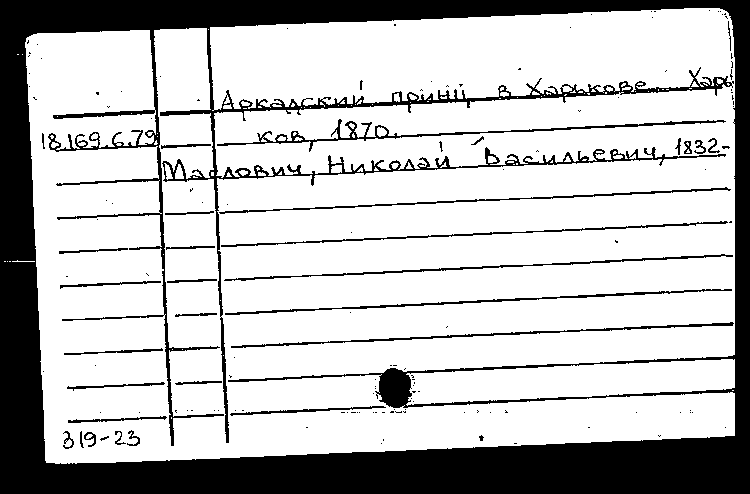 Аркадский принц в Харькове. Харь
18.169.6.79 ков, 1870.
Маслович, Николай Васильевич, 1832-
319-23